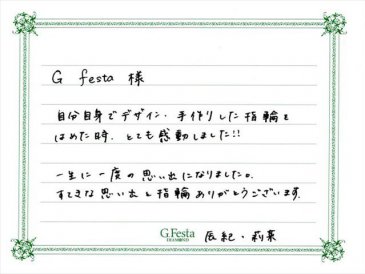 G festa 様
自分自身でデザイン、手作りした指輪を
はめた時、とても感動しました!!
一生に一度の思い出になりました。
すてきな思い出と指輪ありがとうございます。
G.Festa
DIAMOND
辰紀・莉菜